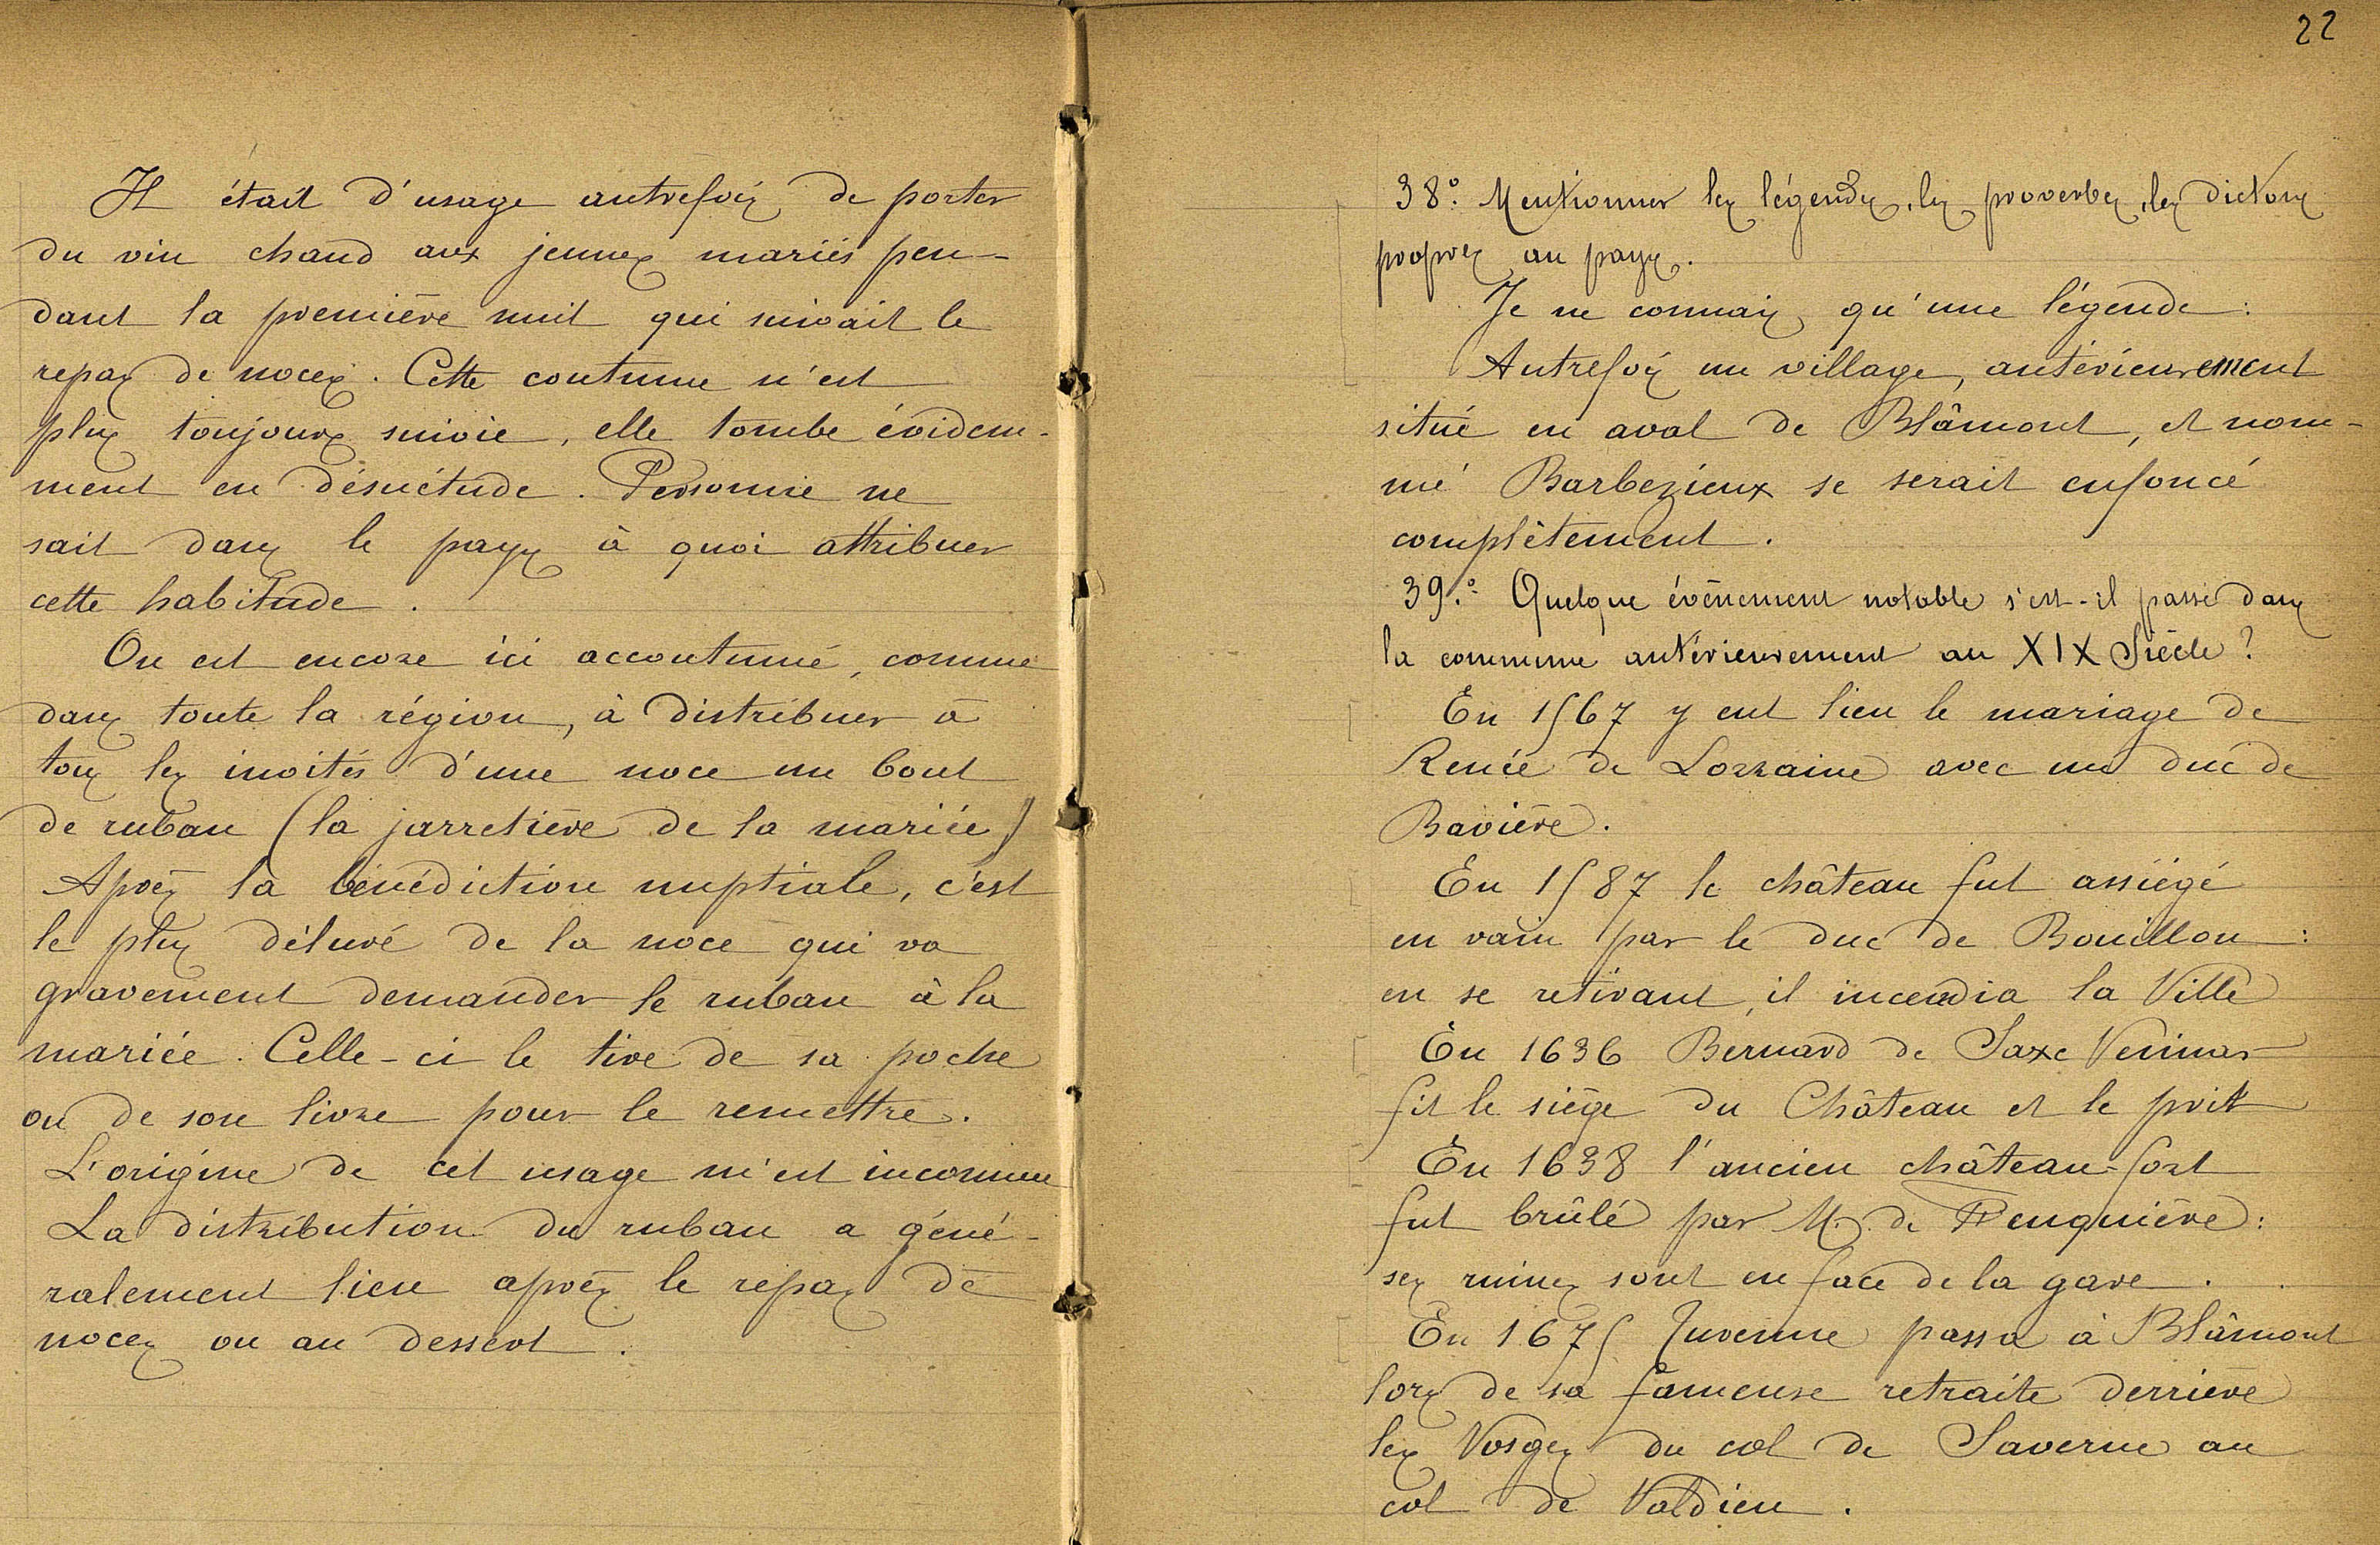 Il était d'usage autrefois de porter
du vin chaud aux jeunes mariés pen-
dant la première nuit qui suivait le
repas de noces. Cette coutume n'est
plus toujours suivie, elle tombe évidem-
ment en désuétude. Personne ne
sait dans le pays à quoi attribuer
cette habitude.
On est encore ici accoutumé, comme
dans toute la région, à distribuer à
tous les invités d'une noce un bout
de ruban (la jarretière de la mariée)
Après la bénédiction nuptiale, c'est
le plus déluré de la noce qui va
gravement demander le ruban à la
mariée. Celle-ci le tire de sa poche
ou de son livre pour le remettre.
L'origine de cet usage m'est inconnue
La distribution du ruban a géné-
ralement lieu après le repas de
noces ou au dessert.
22
38.° Mentionner les légendes, les proverbes, les dictons
propres au pays.
Je ne connais qu'une légende:
Autrefois un village, antérieurement
situé en aval de Blâmont, et nom-
mé Barbezieux se serait enfoncé
complètement.
39.° Quelque événement notable s'est-il passé dans
la commune antérieurement au XIX Siècle?
En 1567 y eut lieu le mariage de
Renée de Lorraine avec un duc de
Bavière.
En 1587 le château fut assiégé
en vain par le duc de Bouillon:
en se retirant, il incendia la Ville
En 1636 Bernard de Saxe Veimar
fit le siège du Château et le prit
En 1638 l'ancien château-fort
fut brûlé par M. de Feuquière:
ses ruines sont en face de la gare.
En 1675 Turenne passa à Blâmont
lors de sa fameuse retraite derrière
les Vosges du col de Saverne au
col de Valdieu.